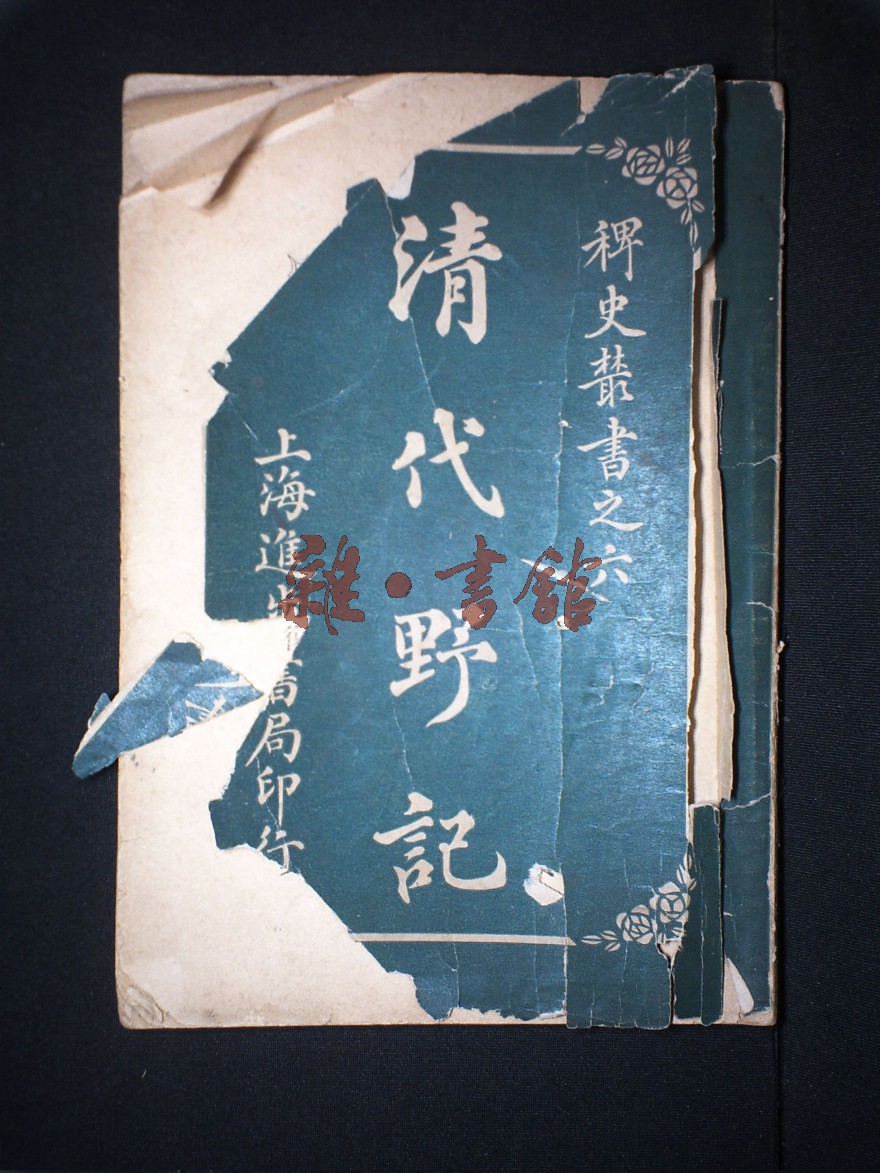 稗史叢書之六
清代野記
上海進步書局印行
雜·書館